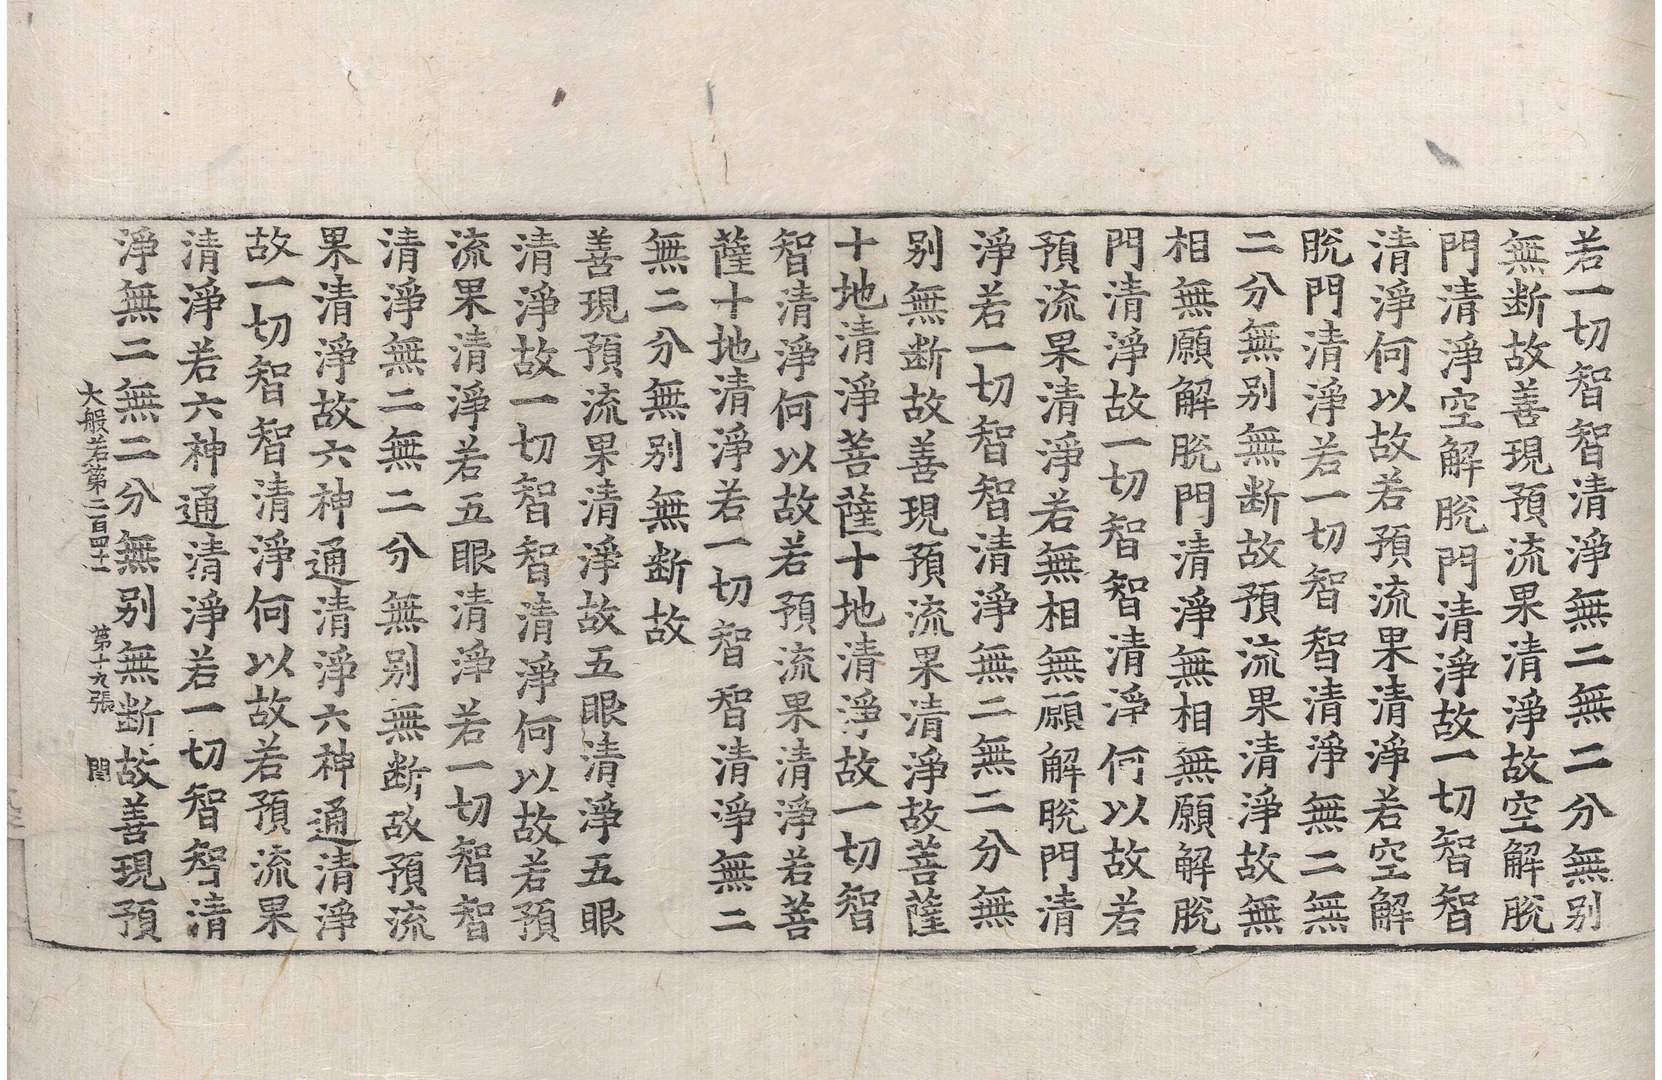 若一切智智清淨無二無二分無别
無断故善現預流果清淨故空解脫
門清淨空解脫門清淨故一切智智
清淨何以故若預流果清淨若空解
脫門清淨若一切智智清淨無二無
二分無别無断故預流果清淨故無
相無願解脫門清淨無相無願解脫
門清淨故一切智智清淨何以故若
預流果清淨若無相無願解脫門清
淨若一切智智清淨無二無二分無
别無断故善現預流果清淨故菩薩
十地清淨菩薩十地清淨故一切智
智清淨何以故若預流果清淨若菩
薩十地清淨若一切智智清淨無二
無二分無别無断故
善現預流果清淨故五眼清淨五眼
清淨故一切智智清淨何以故若預
流果清淨若五眼清淨若一切智智
清淨無二無二分無别無断故預流
果清淨故六神通清淨六神通清淨
故一切智智清淨何以故若預流果
清淨若六神通清淨若一切智智清
淨無二無二分無别無断故善現預
大般若第二百四十一 第十九張 閏